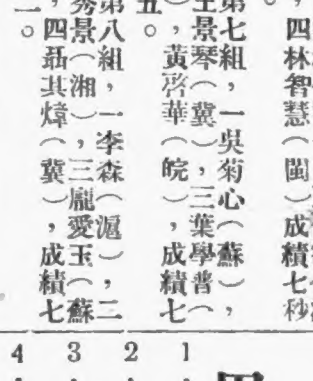 ，四林智慧（閩）成績七秒
。
第七組，一吳菊心（蘇），
王景琴（冀），三葉學普（
，黃啓華（皖），成績七
五。
第八組，一李森（滬），二
秀景（湘），三龐愛玉（蘇
，四聶其煒（冀），成績七
。
1
2
3
4